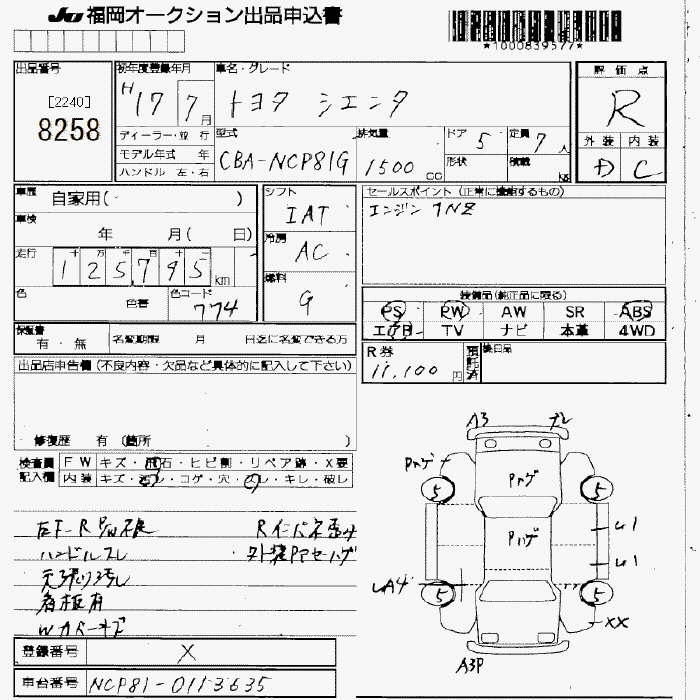 JU 福岡オークション出品申込書
*1000839577*
出品番号
[2240]
8258
初年度登録年月
H 17 7月
ディーラー・並行
モデル年式 年
ハンドル 左・右
車名・グレード
トヨタ シエンタ
型式
CBA-NCP81G
排気量
1500 cc
ドア 5
定員 7人
形状
積載 kg
評価点
R
外装 内装
D C
車歴 自家用( )
車検 年 月( 日)
走行 125795 km
色 色替
色コード 774
シフト
IAT
冷房
AC
燃料
G
セールスポイント (正常に機能するもの)
エンジン 1NZ
装備品(純正品に限る)
PS PW AW SR ABS
エアB TV ナビ 本革 4WD
保証書
有・無
名変期限 月 日迄に名変できる方
R券
11,100 円
預託済
後日品
出品店申告欄 (不良内容・欠品など具体的に記入して下さい)
修復歴 有 (箇所 )
検査員記入欄
FW キズ・飛石・ヒビ割・リペア跡・X要
内装 キズ・汚レ・コゲ・穴・スレ・キレ・破レ
ハンドルスレ
天張り汚レ
看板有
Wカバーキズ
Rインパネ歪み
登録番号 X
車台番号 NCP81-0113635
A3
Pハゲ
Pハゲ
Pハゲ
5
5
5
5
U1
U1
UA4
XX
A3P